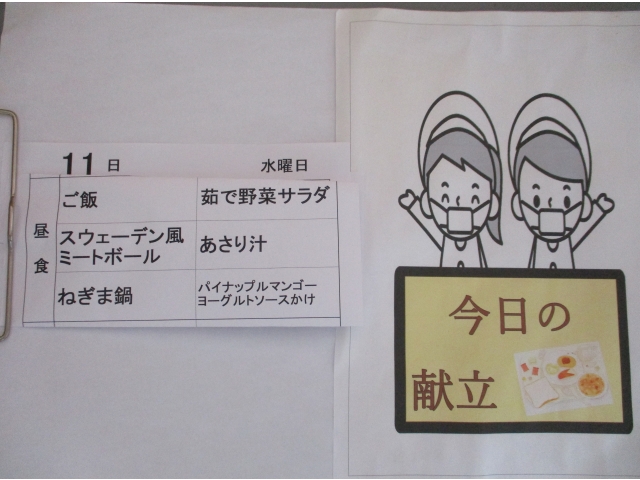 11日 水曜日
昼食
ご飯 茹で野菜サラダ
スウェーデン風
ミートボール
あさり汁
ねぎま鍋
パイナップルマンゴー
ヨーグルトソースかけ
今日の
献立